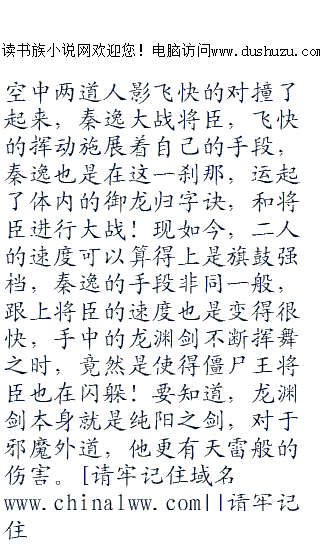 读书族小说网欢迎您！电脑访问www.dushuzu.com
空中两道人影飞快的对撞了
起来，秦逸大战将臣，飞快
的挥动施展着自己的手段，
秦逸也是在这一刹那，运起
了体内的御龙归字诀，和将
臣进行大战！现如今，二人
的速度可以算得上是旗鼓强
档，秦逸的手段非同一般，
跟上将臣的速度也是变得很
快，手中的龙渊剑不断挥舞
之时，竟然是使得僵尸王将
臣也在闪躲！要知道，龙渊
剑本身就是纯阳之剑，对于
邪魔外道，他更有天雷般的
伤害。[请牢记住域名
www.china1ww.com||请牢记
住